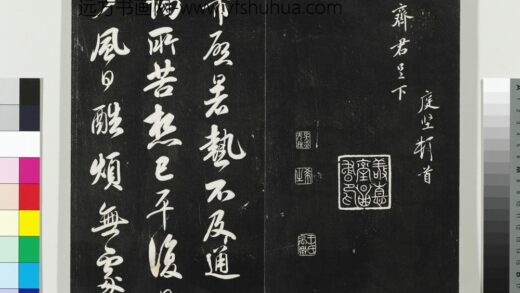 远方书画网-www.yfshuhua.com
庭坚頓首
齊君足下
啓暑熱不及通
所苦想已平復
風日酷煩無處